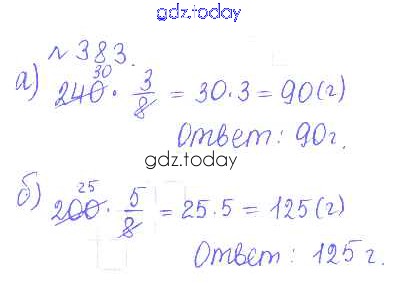 gdz.today
№ 383.
а) 240 · 3/8 = 30 · 3 = 90 (г)
30
Ответ: 90 г.
gdz.today
б) 200 · 5/8 = 25 · 5 = 125 (г)
25
Ответ: 125 г.